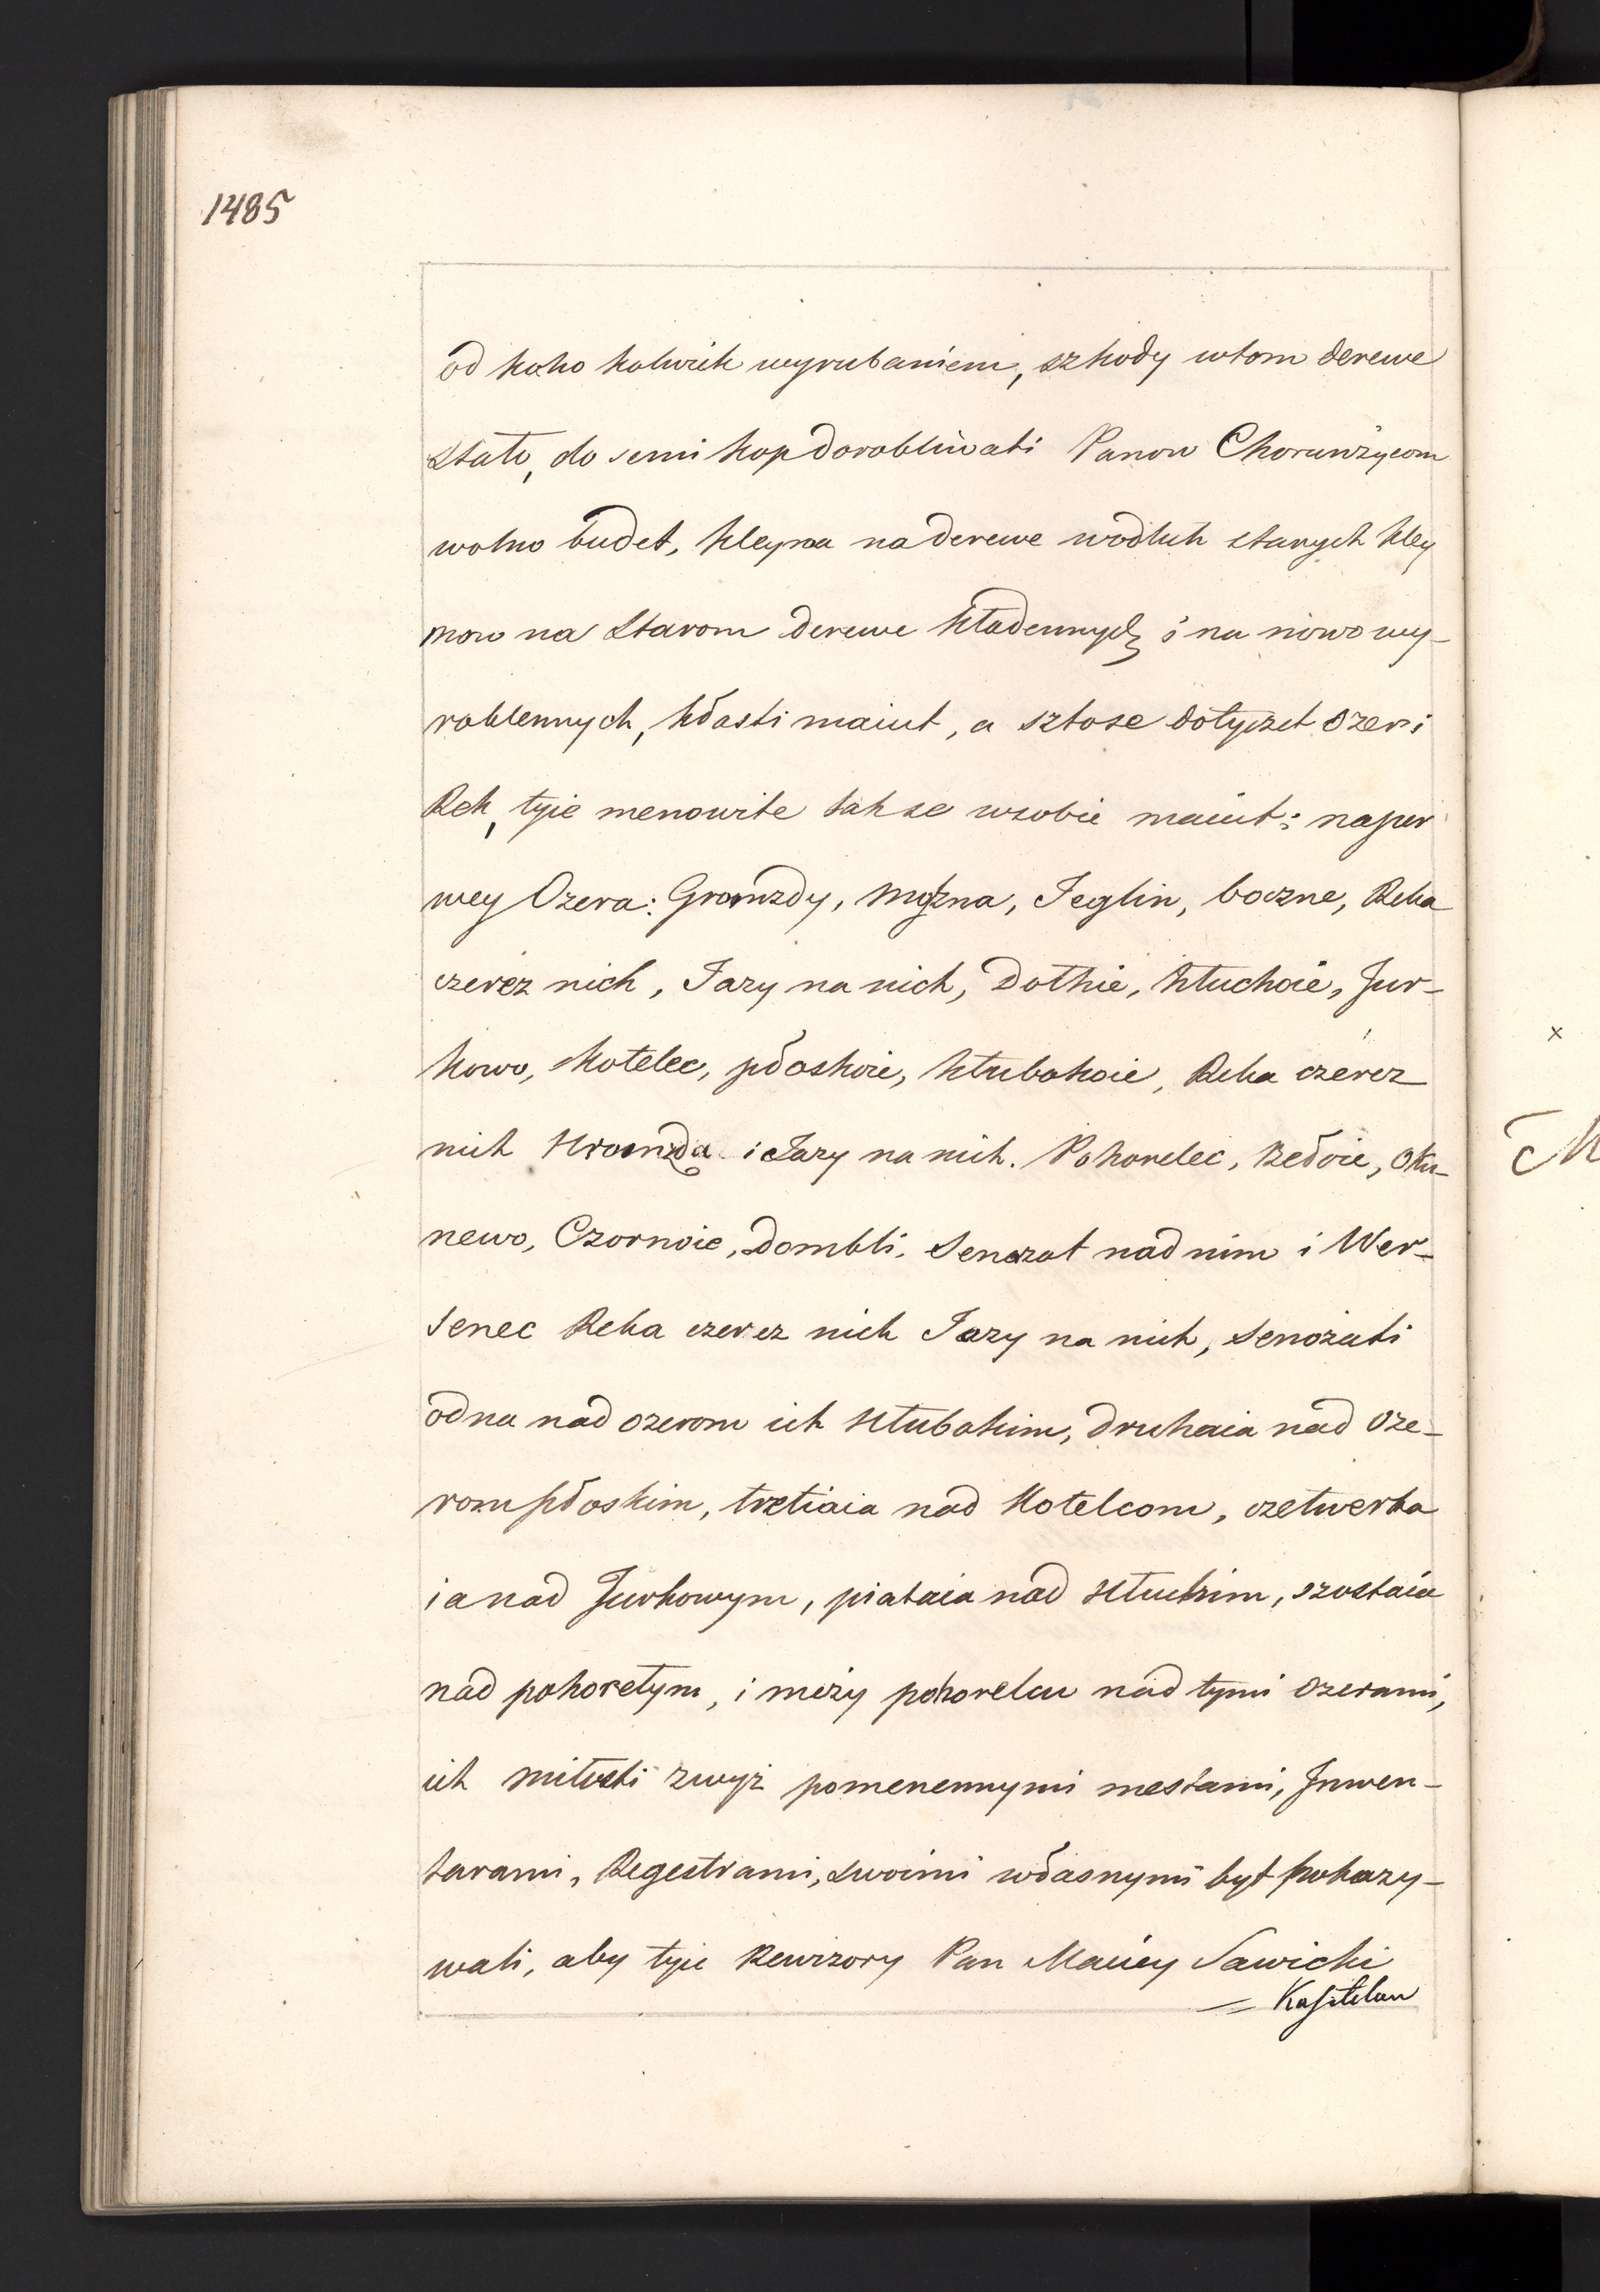 1485
od koho kolwiek wyrubaniem, szkody wtom derewe
stało, do semi kop dorobliwati Panow Chorunżycom
wolno budet, kleyma na derewe wodłuh starych kley
mow na starom derewe kładennych i na nowo wy-
roblennych, kłasti maiut, a sztose dotyczet Ozer i
Rek, tyie menowite tak se wsobie maiut: naper
wey Ozera: Gromzdy, Mozna, Jeglin, boczne, Reka
czerez nich, Jazy na nich, Dołhie, Hłuchoie, Jur-
kowo, Kotelec, płoskoie, hłubokoie, Reka czerez
nich Hromzda i Jazy na nich. Pohorelec, Bełoie, Oku-
newo, Czornoie, Dombli, Senozat nad nim i Wer-
senec Reka czerez nich Jazy na nich, Senożati
odna nad ozerom ich Hłubokim, druhaia nad Oze-
rom płoskim, tretiaia nad Kotelcom, czetwerta
ia nad Jurkowym, piataia nad Hłuchim, szostaia
nad pohorełym, i meży pohorelcu nad tymi ozerami,
ich miłosti zwyż pomenennymi mestami, Jnwen-
tarami, Regestrami, swoimi własnymi był pokazy-
wali, aby tyie Rewizory Pan Maciey Sawicki
= Kasztelan
x
M